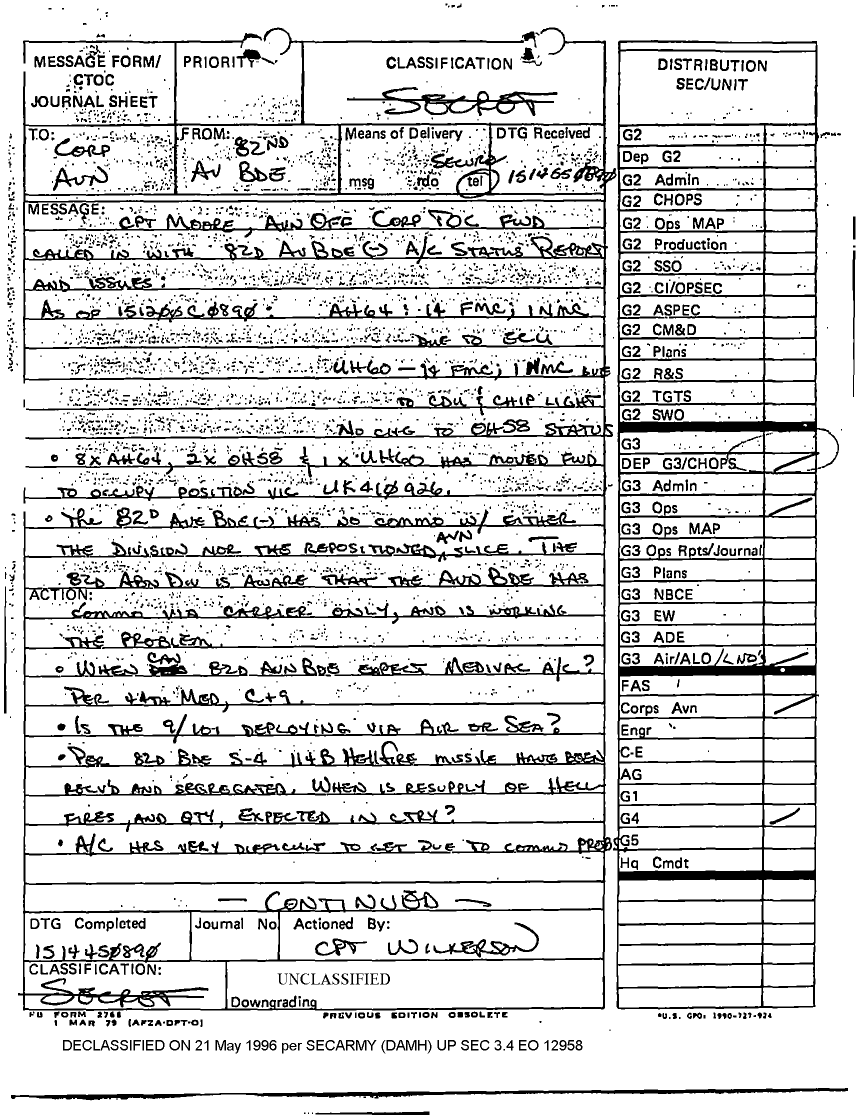 MESSAGE FORM/
CTOC
JOURNAL SHEET
PRIORITY
CLASSIFICATION
SECRET
TO:
CORP
AVN
FROM:
82ND
AV BDE
Means of Delivery
SECURE
msg rdo tel
DTG Received
MESSAGE:
CPT MOORE, AVN OFF CORP TOC FWD
CALLED IN WITH 82D AV BDE(-) A/C STATUS REPORT
AND ISSUES:
AS OF 151200C0890: AH64: 14 FMC; 1 NMC
DUE TO ECU
UH60 – 14 FMC; 1 NMC DUE
TO CDU & CHIP LIGHT
NO CHG TO OH58 STATUS
• 8X AH64, 2X OH58 & 1 X UH60 HAS MOVED FWD
TO OCCUPY POSITION VIC UK410926.
• THE 82D AVE BDE(-) HAS NO COMMO W/ EITHER
THE DIVISION NOR THE REPOSITIONED AVN SLICE. THE
82D ABN DIV IS AWARE THAT THE AVN BDE HAS
ACTION:
COMMO VIA CARRIER ONLY, AND IS WORKING
THE PROBLEM.
• WHEN CAN 82D AVN BDE EXPECT MEDIVAC A/C?
PER 44TH MED, C+9.
• IS THE 9/101 DEPLOYING VIA AIR OR SEA?
• PER 82D BDE S-4 114B HELLFIRE MISSILE HAVE BEEN
RECV'D AND SEGREGATED. WHEN IS RESUPPLY OF HELL-
FIRES, AND QTY, EXPECTED IN CTRY?
• A/C HRS VERY DIFFICULT TO GET DUE TO COMMO PROBS,
— CONTINUED —
DTG Completed
1514450890
Journal No.
Actioned By:
CPT WILKERSON
CLASSIFICATION:
SECRET
UNCLASSIFIED
Downgrading
FORM 2768
1 MAR 79 (AFZA-DPT-O)
PREVIOUS EDITION OBSOLETE
DISTRIBUTION
SEC/UNIT
G2
Dep G2
G2 Admin
G2 CHOPS
G2 Ops MAP
G2 Production
G2 SSO
G2 CI/OPSEC
G2 ASPEC
G2 CM&D
G2 Plans
G2 R&S
G2 TGTS
G2 SWO
G3
DEP G3/CHOPS
G3 Admin
G3 Ops
G3 Ops MAP
G3 Ops Rpts/Journal
G3 Plans
G3 NBCE
G3 EW
G3 ADE
G3 Air/ALO/LNO'S
FAS
Corps Avn
Engr
C-E
AG
G1
G4
G5
Hq Cmdt
*U.S. GPO: 1990-727-924
DECLASSIFIED ON 21 May 1996 per SECARMY (DAMH) UP SEC 3.4 EO 12958